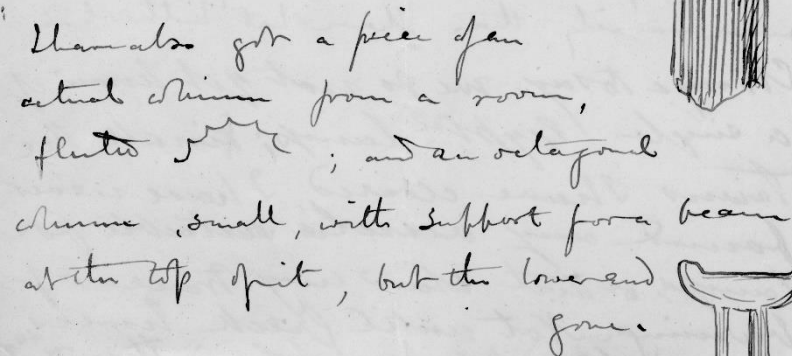 I have also got a piece of an
actual column from a room,
fluted ; and an octagonal
column, small, with support for a beam
at the top of it, but the lower end
gone.